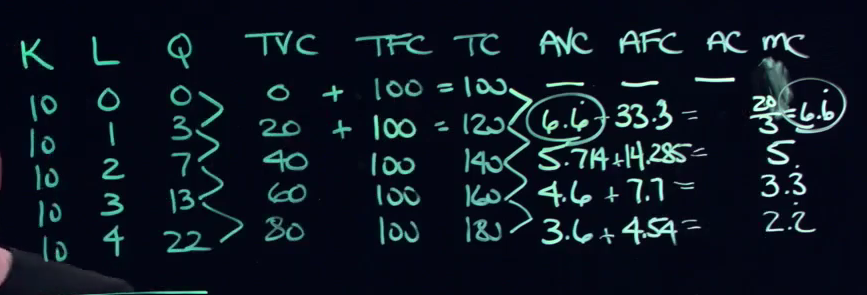 K L Q TVC TFC TC AVC AFC AC MC
10 0 0 0 + 100 = 100 — — —
10 1 3 20 + 100 = 120 6.6̇ + 33.3 = 20/3 = 6.6̇
10 2 7 40 100 140 5.714 + 14.285 = 5.
10 3 13 60 100 160 4.6 + 7.7 = 3.3̇
10 4 22 80 100 180 3.6 + 4.54 = 2.2̇